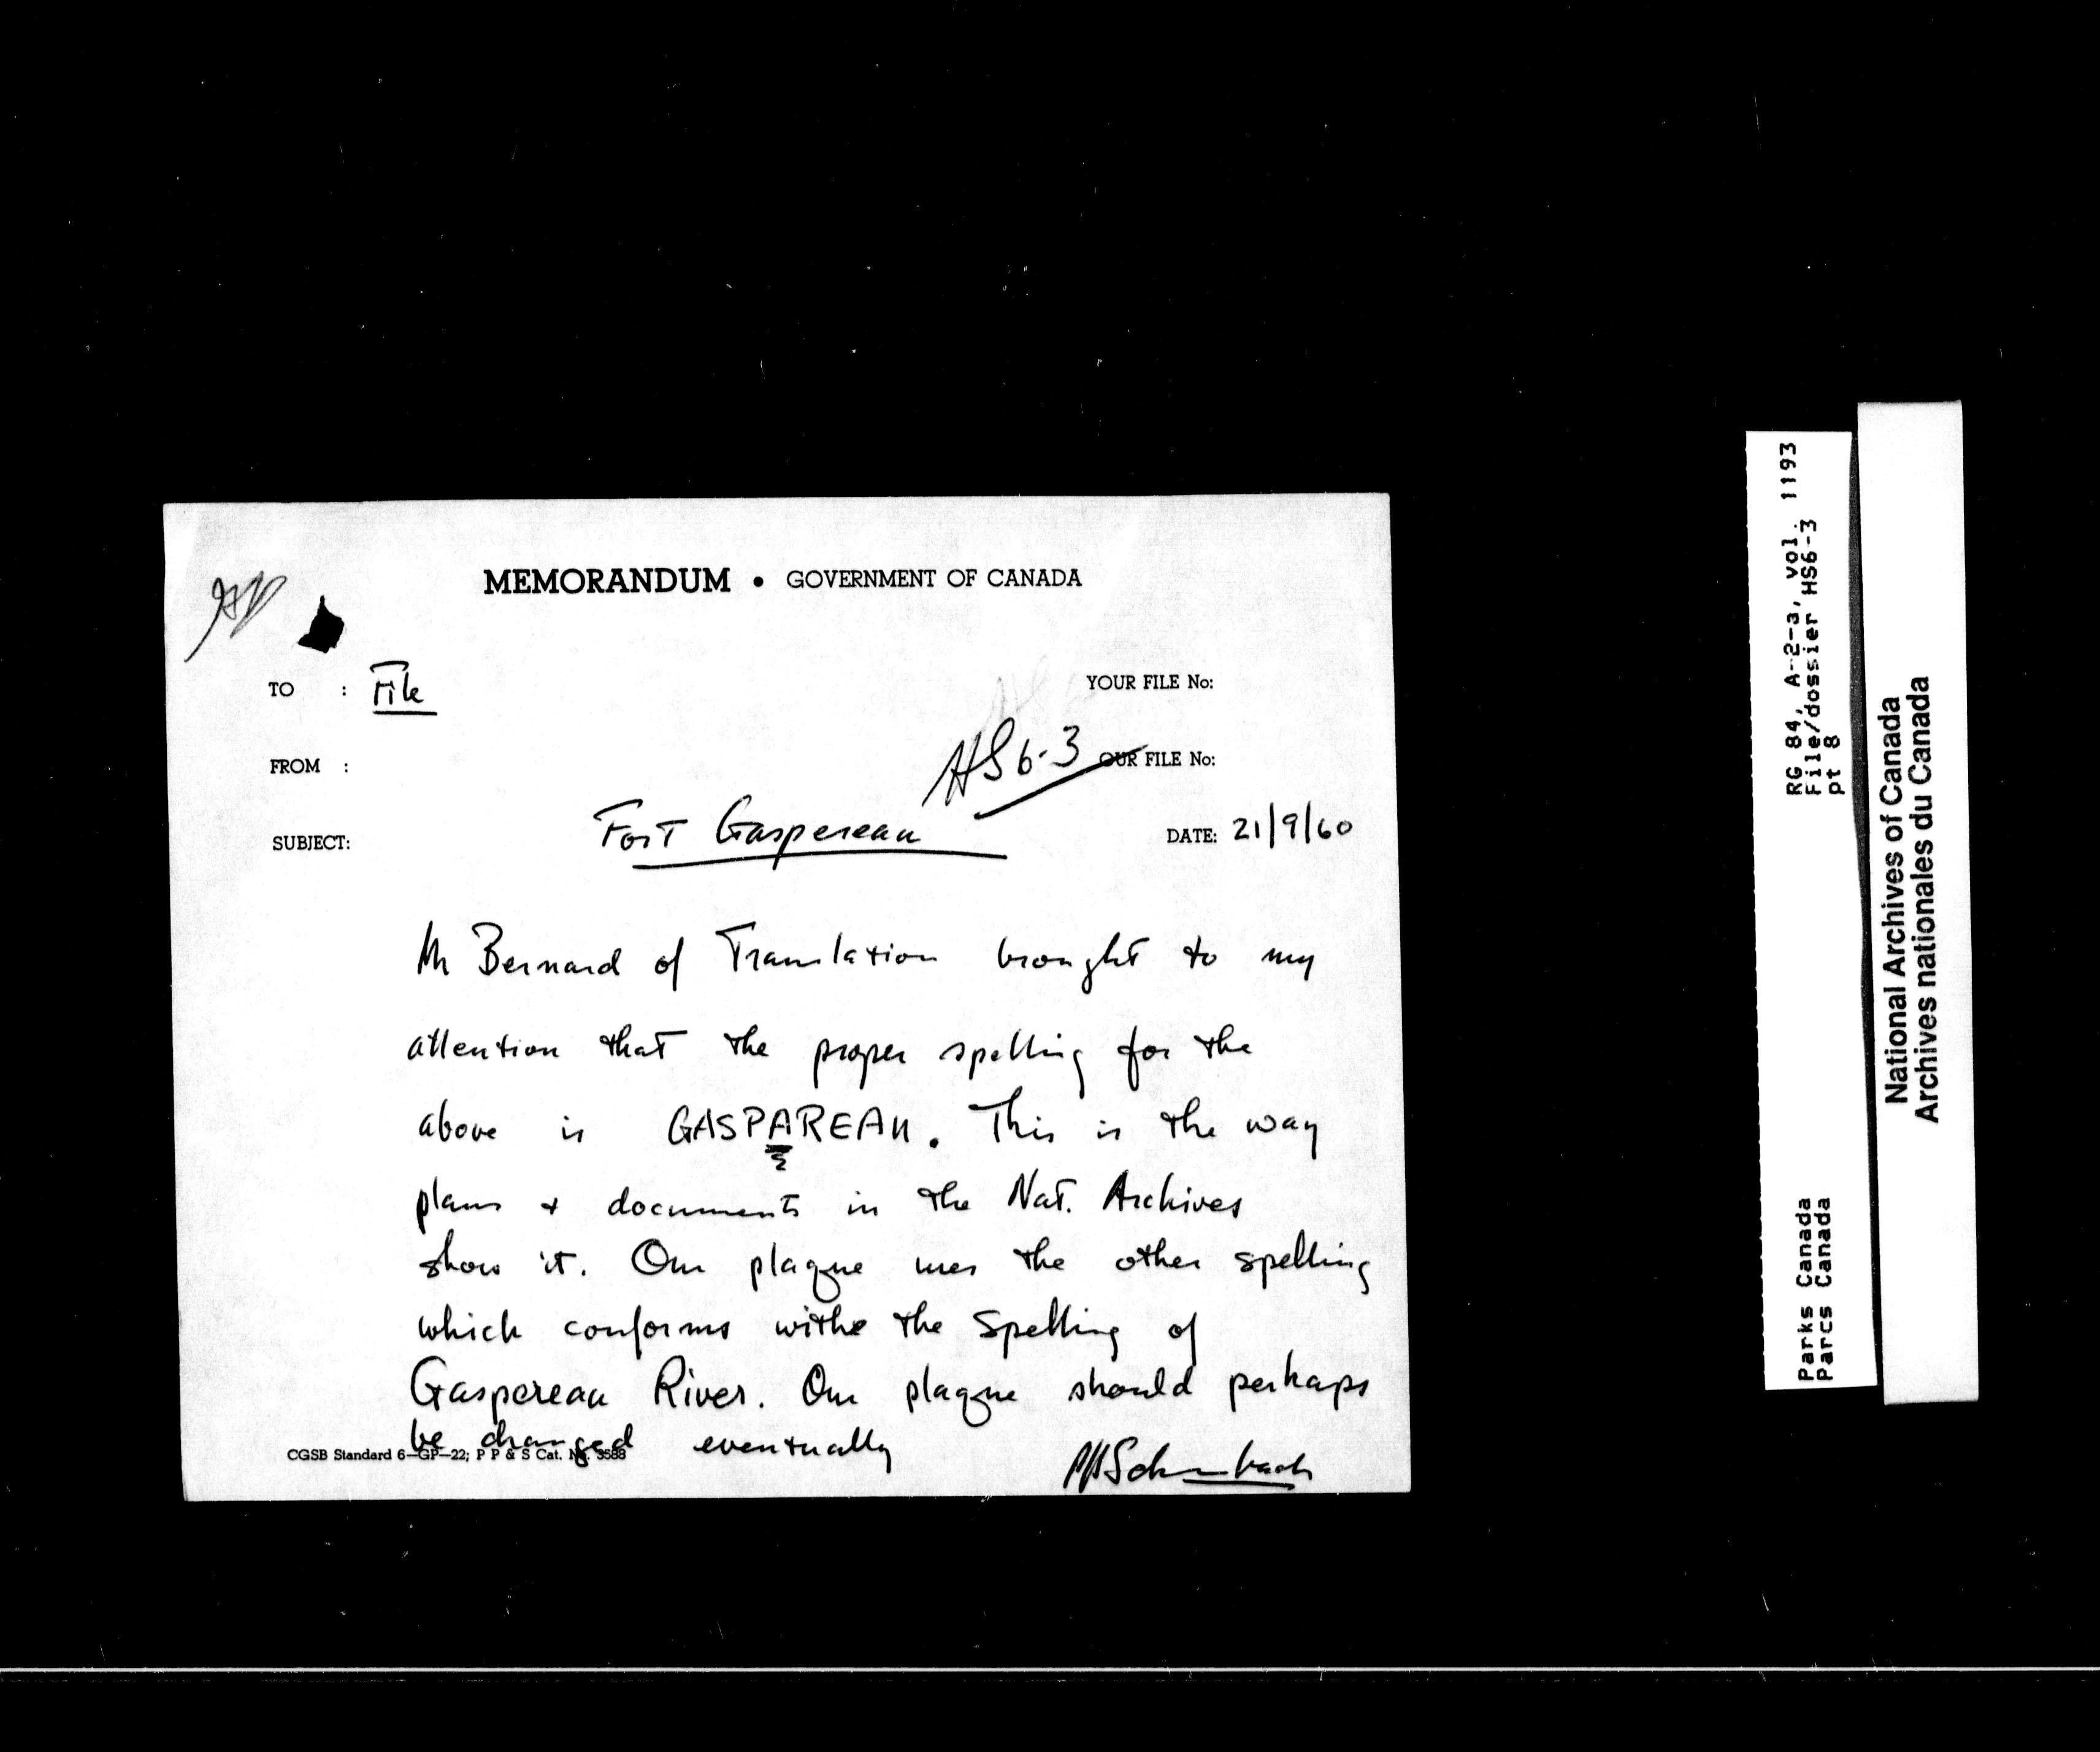 MEMORANDUM • GOVERNMENT OF CANADA
TO : File
YOUR FILE No:
FROM :
HS6-3 OUR FILE No:
SUBJECT: Fort Gaspereau
DATE: 21/9/60
Mr Bernard of Translation brought to my
attention that the proper spelling for the
above is GASPAREAU. This is the way
plans + documents in the Nat. Archives
show it. Our plaque uses the other spelling
which conforms withe the spelling of
Gaspereau River. Our plaque should perhaps
be changed eventually
CGSB Standard 6—GP—22; P P & S Cat. No. 3588
RG 84, A-2-3, vol. 1193
File/dossier HS6-3
pt 8
Parks Canada
Parcs Canada
National Archives of Canada
Archives nationales du Canada